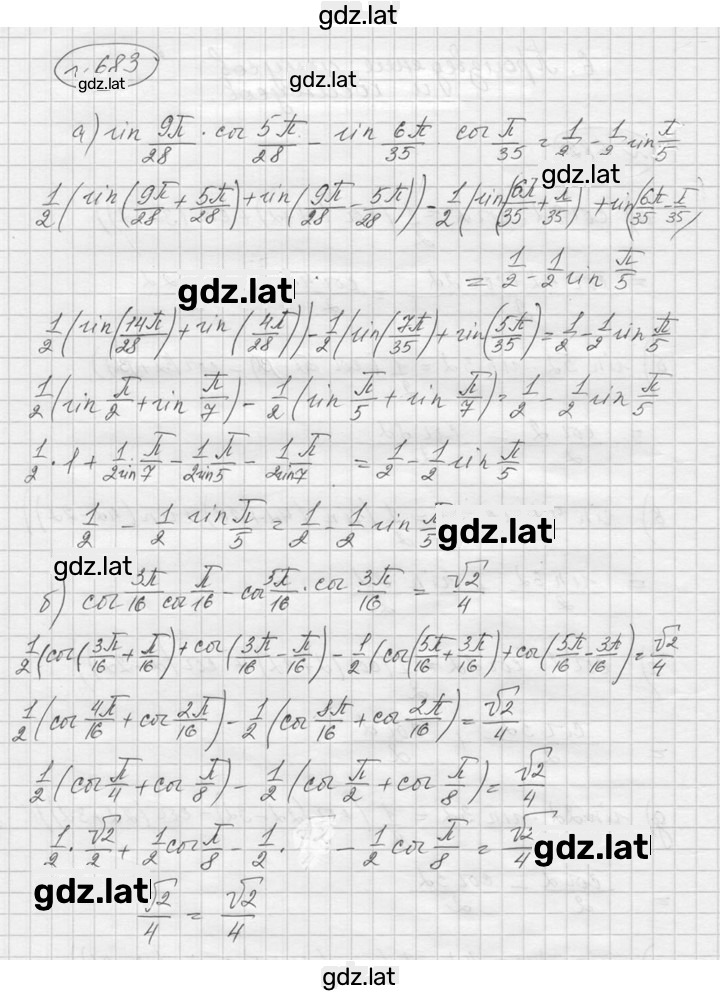 gdz.lat
n. 683
gdz.lat
gdz.lat
а) sin 9π/28 · cos 5π/28 − sin 6π/35 · cos π/35 = 1/2 − 1/2 sin π/5
gdz.lat
1/2 (sin(9π/28 + 5π/28) + sin(9π/28 − 5π/28)) − 1/2 (sin(6π/35 + π/35) + sin(6π/35 − π/35)
= 1/2 − 1/2 sin π/5
gdz.lat
1/2 (sin(14π/28) + sin(4π/28)) − 1/2 (sin(7π/35) + sin(5π/35) = 1/2 − 1/2 sin π/5
1/2 (sin π/2 + sin π/7) − 1/2 (sin π/5 + sin π/7) = 1/2 − 1/2 sin π/5
1/2 · 1 + 1/2 sin π/7 − 1/2 sin π/5 − 1/2 sin π/7 = 1/2 − 1/2 sin π/5
1/2 − 1/2 sin π/5 = 1/2 − 1/2 sin π/5
gdz.lat
gdz.lat
б) cos 3π/16 cos π/16 − cos 5π/16 · cos 3π/16 = √2/4
1/2 (cos(3π/16 + π/16) + cos(3π/16 − π/16) − 1/2 (cos(5π/16 + 3π/16) + cos(5π/16 − 3π/16) = √2/4
1/2 (cos 4π/16 + cos 2π/16) − 1/2 (cos 8π/16 + cos 2π/16) = √2/4
1/2 (cos π/4 + cos π/8) − 1/2 (cos π/2 + cos π/8) = √2/4
1/2 · √2/2 + 1/2 cos π/8 − 1/2 · − 1/2 cos π/8 = √2/4
gdz.lat
gdz.lat
√2/4 = √2/4
gdz.lat